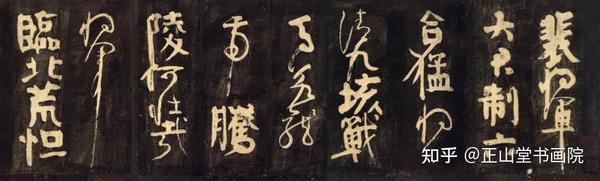 裴將軍
大君制六
合猛將
清九垓戰
馬若龍
虎騰
陵何壯哉
將軍
臨北荒烜
知乎 @正山堂书画院